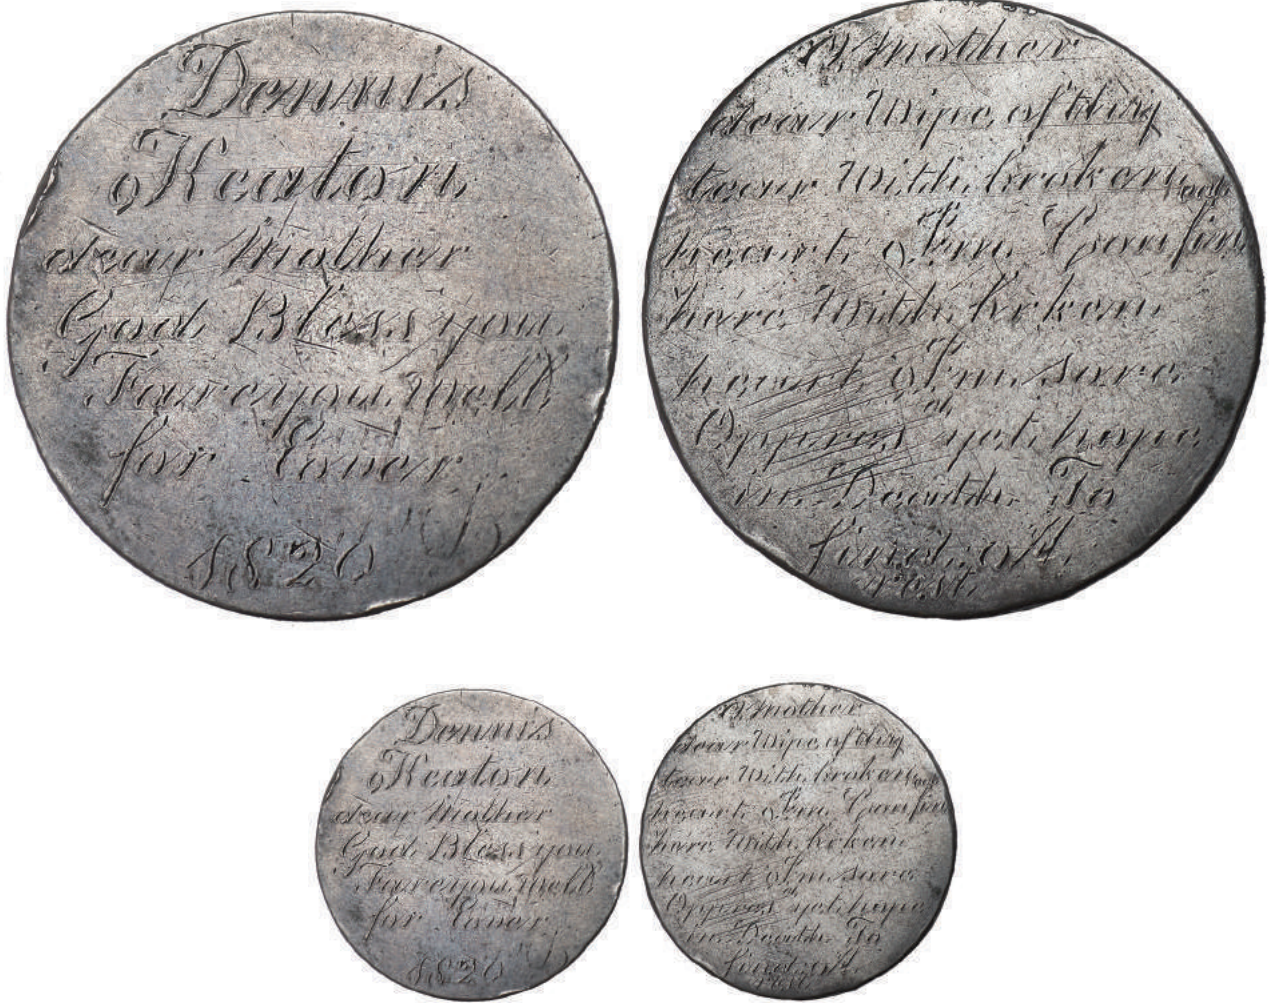 Dennis
Keaton
dear Mother
God Bless you
Fare you Well
for Eaver
1820
O Mother
dear Wipe of they
tear With broken
heart I'm Confin
hare With brkon
heart I'm sore
Oppres yet hope
in Death To
find
rest
Dennis
Keaton
dear Mother
God Bless you
Fare you Well
for Eaver
1820
O Mother
dear Wipe of they
tear With broken
heart I'm Confin
hare With brkon
heart I'm sore
Oppres yet hope
in Death To
find
rest